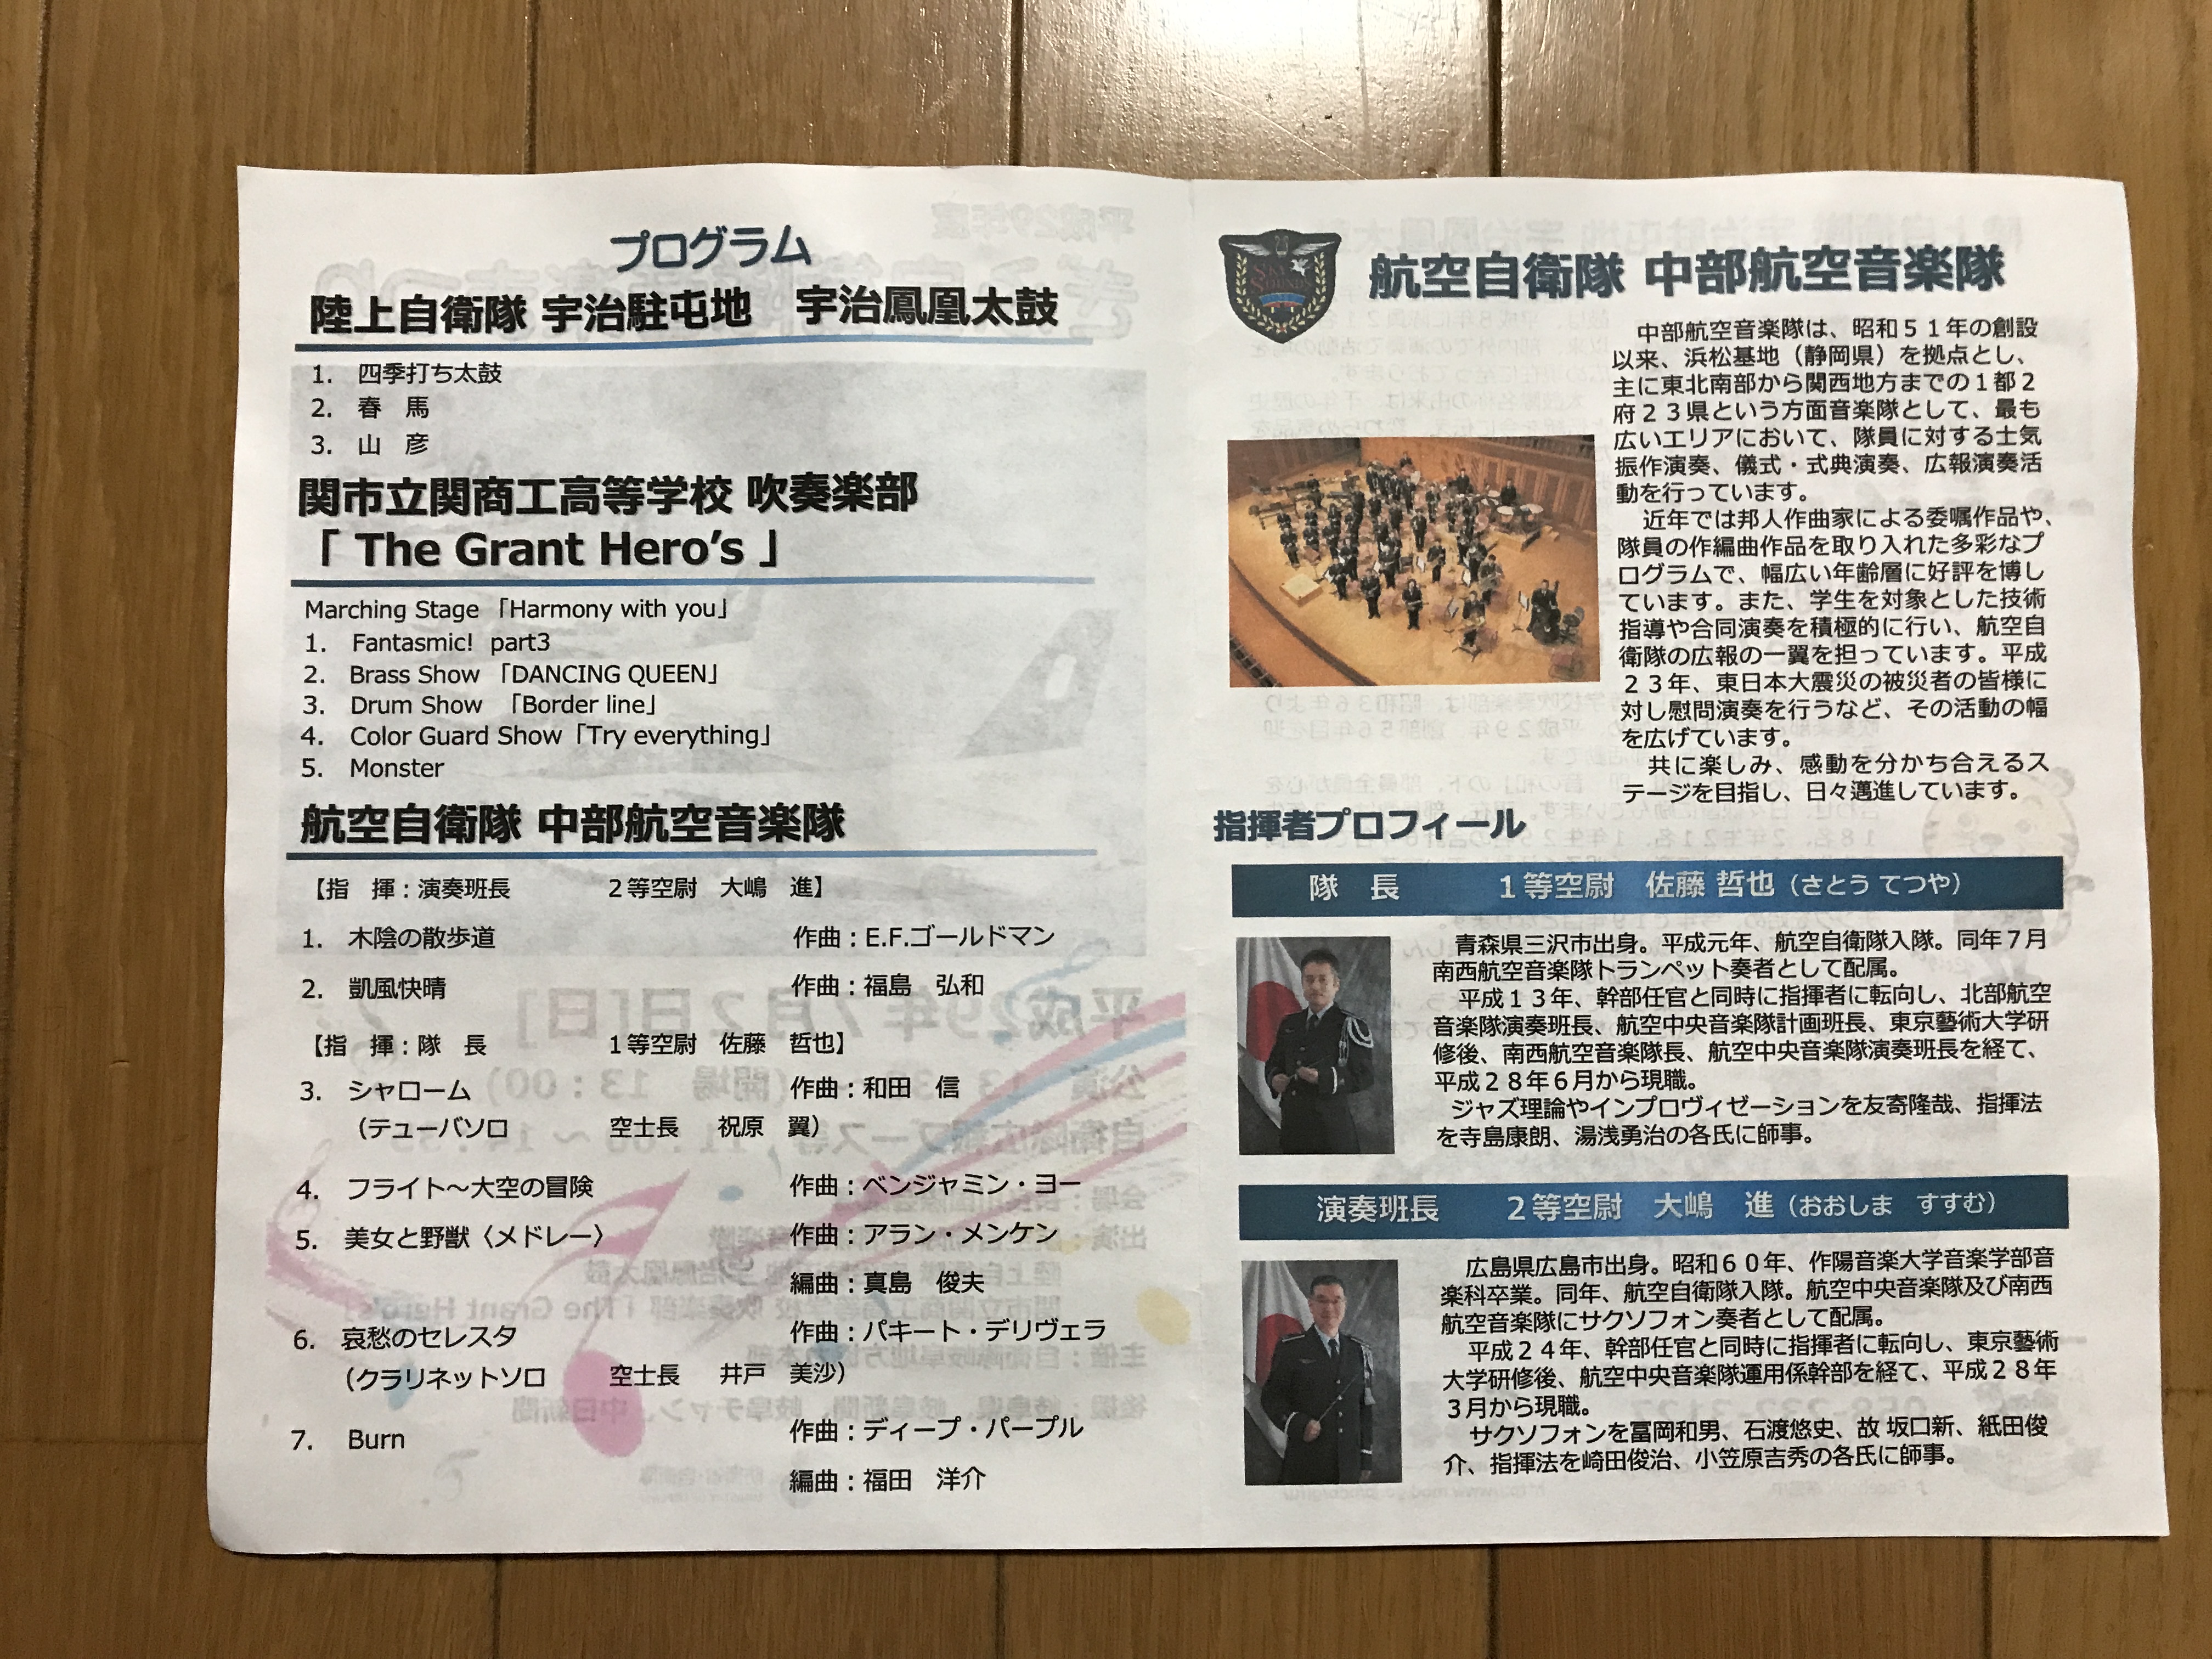 プログラム
陸上自衛隊 宇治駐屯地　宇治鳳凰太鼓
1.　四季打ち太鼓
2.　春　馬
3.　山　彦
関市立関商工高等学校 吹奏楽部
「 The Grant Hero's 」
Marching Stage 「Harmony with you」
1.　Fantasmic! part3
2.　Brass Show 「DANCING QUEEN」
3.　Drum Show 「Border line」
4.　Color Guard Show「Try everything」
5.　Monster
航空自衛隊 中部航空音楽隊
【指　揮：演奏班長　２等空尉　大嶋　進】
1.　木陰の散歩道　作曲：E.F.ゴールドマン
2.　凱風快晴　作曲：福島　弘和
【指　揮：隊　長　１等空尉　佐藤　哲也】
3.　シャローム　作曲：和田　信
（テューバソロ　空士長　祝原　翼）
4.　フライト～大空の冒険　作曲：ベンジャミン・ヨー
5.　美女と野獣〈メドレー〉　作曲：アラン・メンケン
編曲：真島　俊夫
6.　哀愁のセレスタ　作曲：パキート・デリヴェラ
（クラリネットソロ　空士長　井戸　美沙）
7.　Burn　作曲：ディープ・パープル
編曲：福田　洋介
SKY
SOUNDS
航空自衛隊 中部航空音楽隊
中部航空音楽隊は、昭和５１年の創設
以来、浜松基地（静岡県）を拠点とし、
主に東北南部から関西地方までの１都２
府２３県という方面音楽隊として、最も
広いエリアにおいて、隊員に対する士気
振作演奏、儀式・式典演奏、広報演奏活
動を行っています。
近年では邦人作曲家による委嘱作品や、
隊員の作編曲作品を取り入れた多彩なプ
ログラムで、幅広い年齢層に好評を博し
ています。また、学生を対象とした技術
指導や合同演奏を積極的に行い、航空自
衛隊の広報の一翼を担っています。平成
２３年、東日本大震災の被災者の皆様に
対し慰問演奏を行うなど、その活動の幅
を広げています。
共に楽しみ、感動を分かち合えるス
テージを目指し、日々邁進しています。
指揮者プロフィール
隊　長　１等空尉　佐藤 哲也（さとう てつや）
青森県三沢市出身。平成元年、航空自衛隊入隊。同年７月
南西航空音楽隊トランペット奏者として配属。
平成１３年、幹部任官と同時に指揮者に転向し、北部航空
音楽隊演奏班長、航空中央音楽隊計画班長、東京藝術大学研
修後、南西航空音楽隊長、航空中央音楽隊演奏班長を経て、
平成２８年６月から現職。
ジャズ理論やインプロヴィゼーションを友寄隆哉、指揮法
を寺島康朗、湯浅勇治の各氏に師事。
演奏班長　２等空尉　大嶋　進（おおしま　すすむ）
広島県広島市出身。昭和６０年、作陽音楽大学音楽学部音
楽科卒業。同年、航空自衛隊入隊。航空中央音楽隊及び南西
航空音楽隊にサクソフォン奏者として配属。
平成２４年、幹部任官と同時に指揮者に転向し、東京藝術
大学研修後、航空中央音楽隊運用係幹部を経て、平成２８年
３月から現職。
サクソフォンを冨岡和男、石渡悠史、故 坂口新、紙田俊
介、指揮法を崎田俊治、小笠原吉秀の各氏に師事。